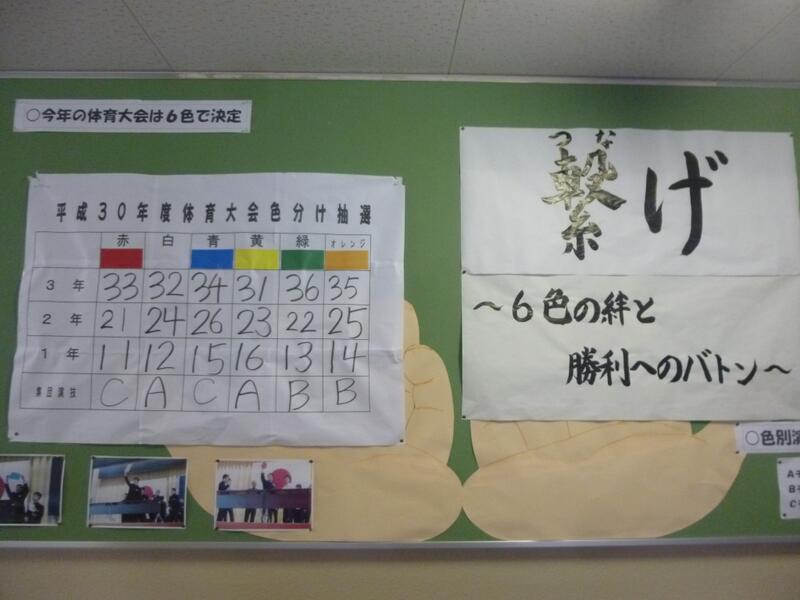 ○今年の体育大会は6色で決定
平成30年度体育大会色分け抽選
赤 白 青 黄 緑 オレンジ
3年 33 32 34 31 36 35
2年 21 24 26 23 22 25
1年 11 12 15 16 13 14
集団演技 C A C A B B
つな
繋げ
～6色の絆と
勝利へのバトン～
○色別演
A
B
C